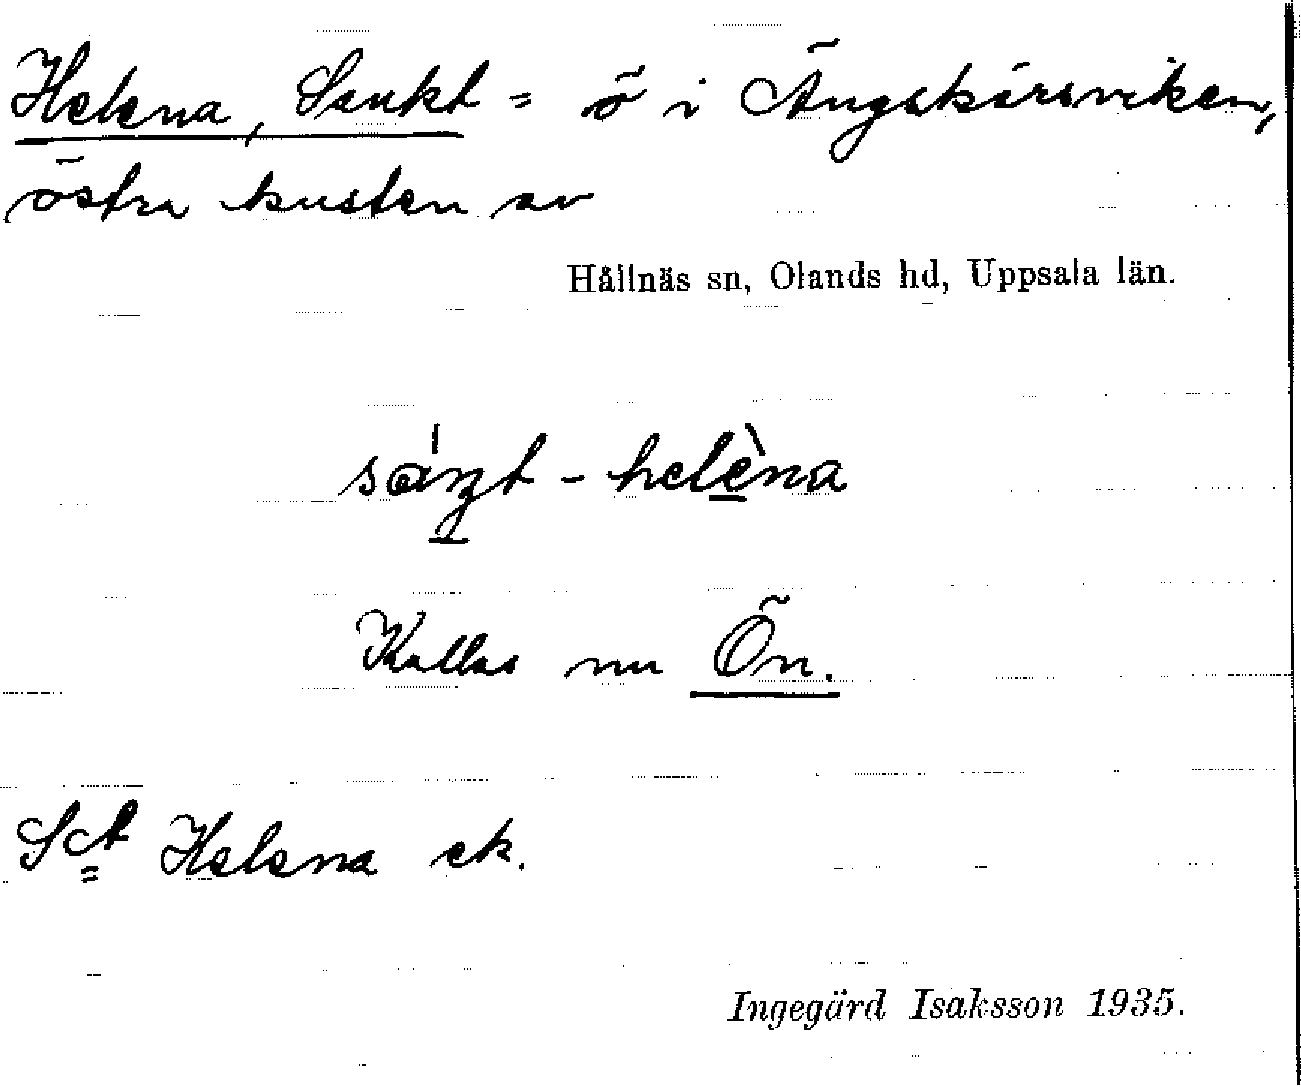 Helena, Sankt = ö i Ängskärsviken,
östra kusten av
Hållnäs sn, Olands hd, Uppsala län.
sáŋt - helèna
Kallas nu Ön.
Sct Helena ek.
Ingegärd Isaksson 1935.